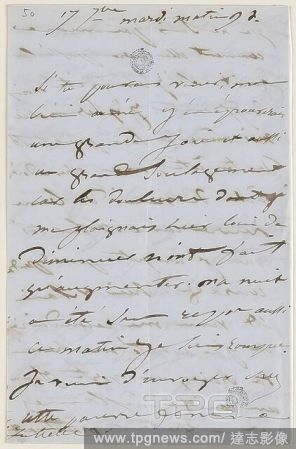 50
17 7bre mardi matin 9 h.
Si tu pouvais venir, mon
bien aimé, j'en éprouverais
une grande joie et aussi
un grand soulagement
car les douleurs dont je
me plaignais hier loin de
diminuer n'ont fait
qu'augmenter. Ma nuit
a été sans repos aussi
ce matin je suis
Je viens d'envoyer
cette pauvre
TPG
www.tpgnews.com / 達志影像